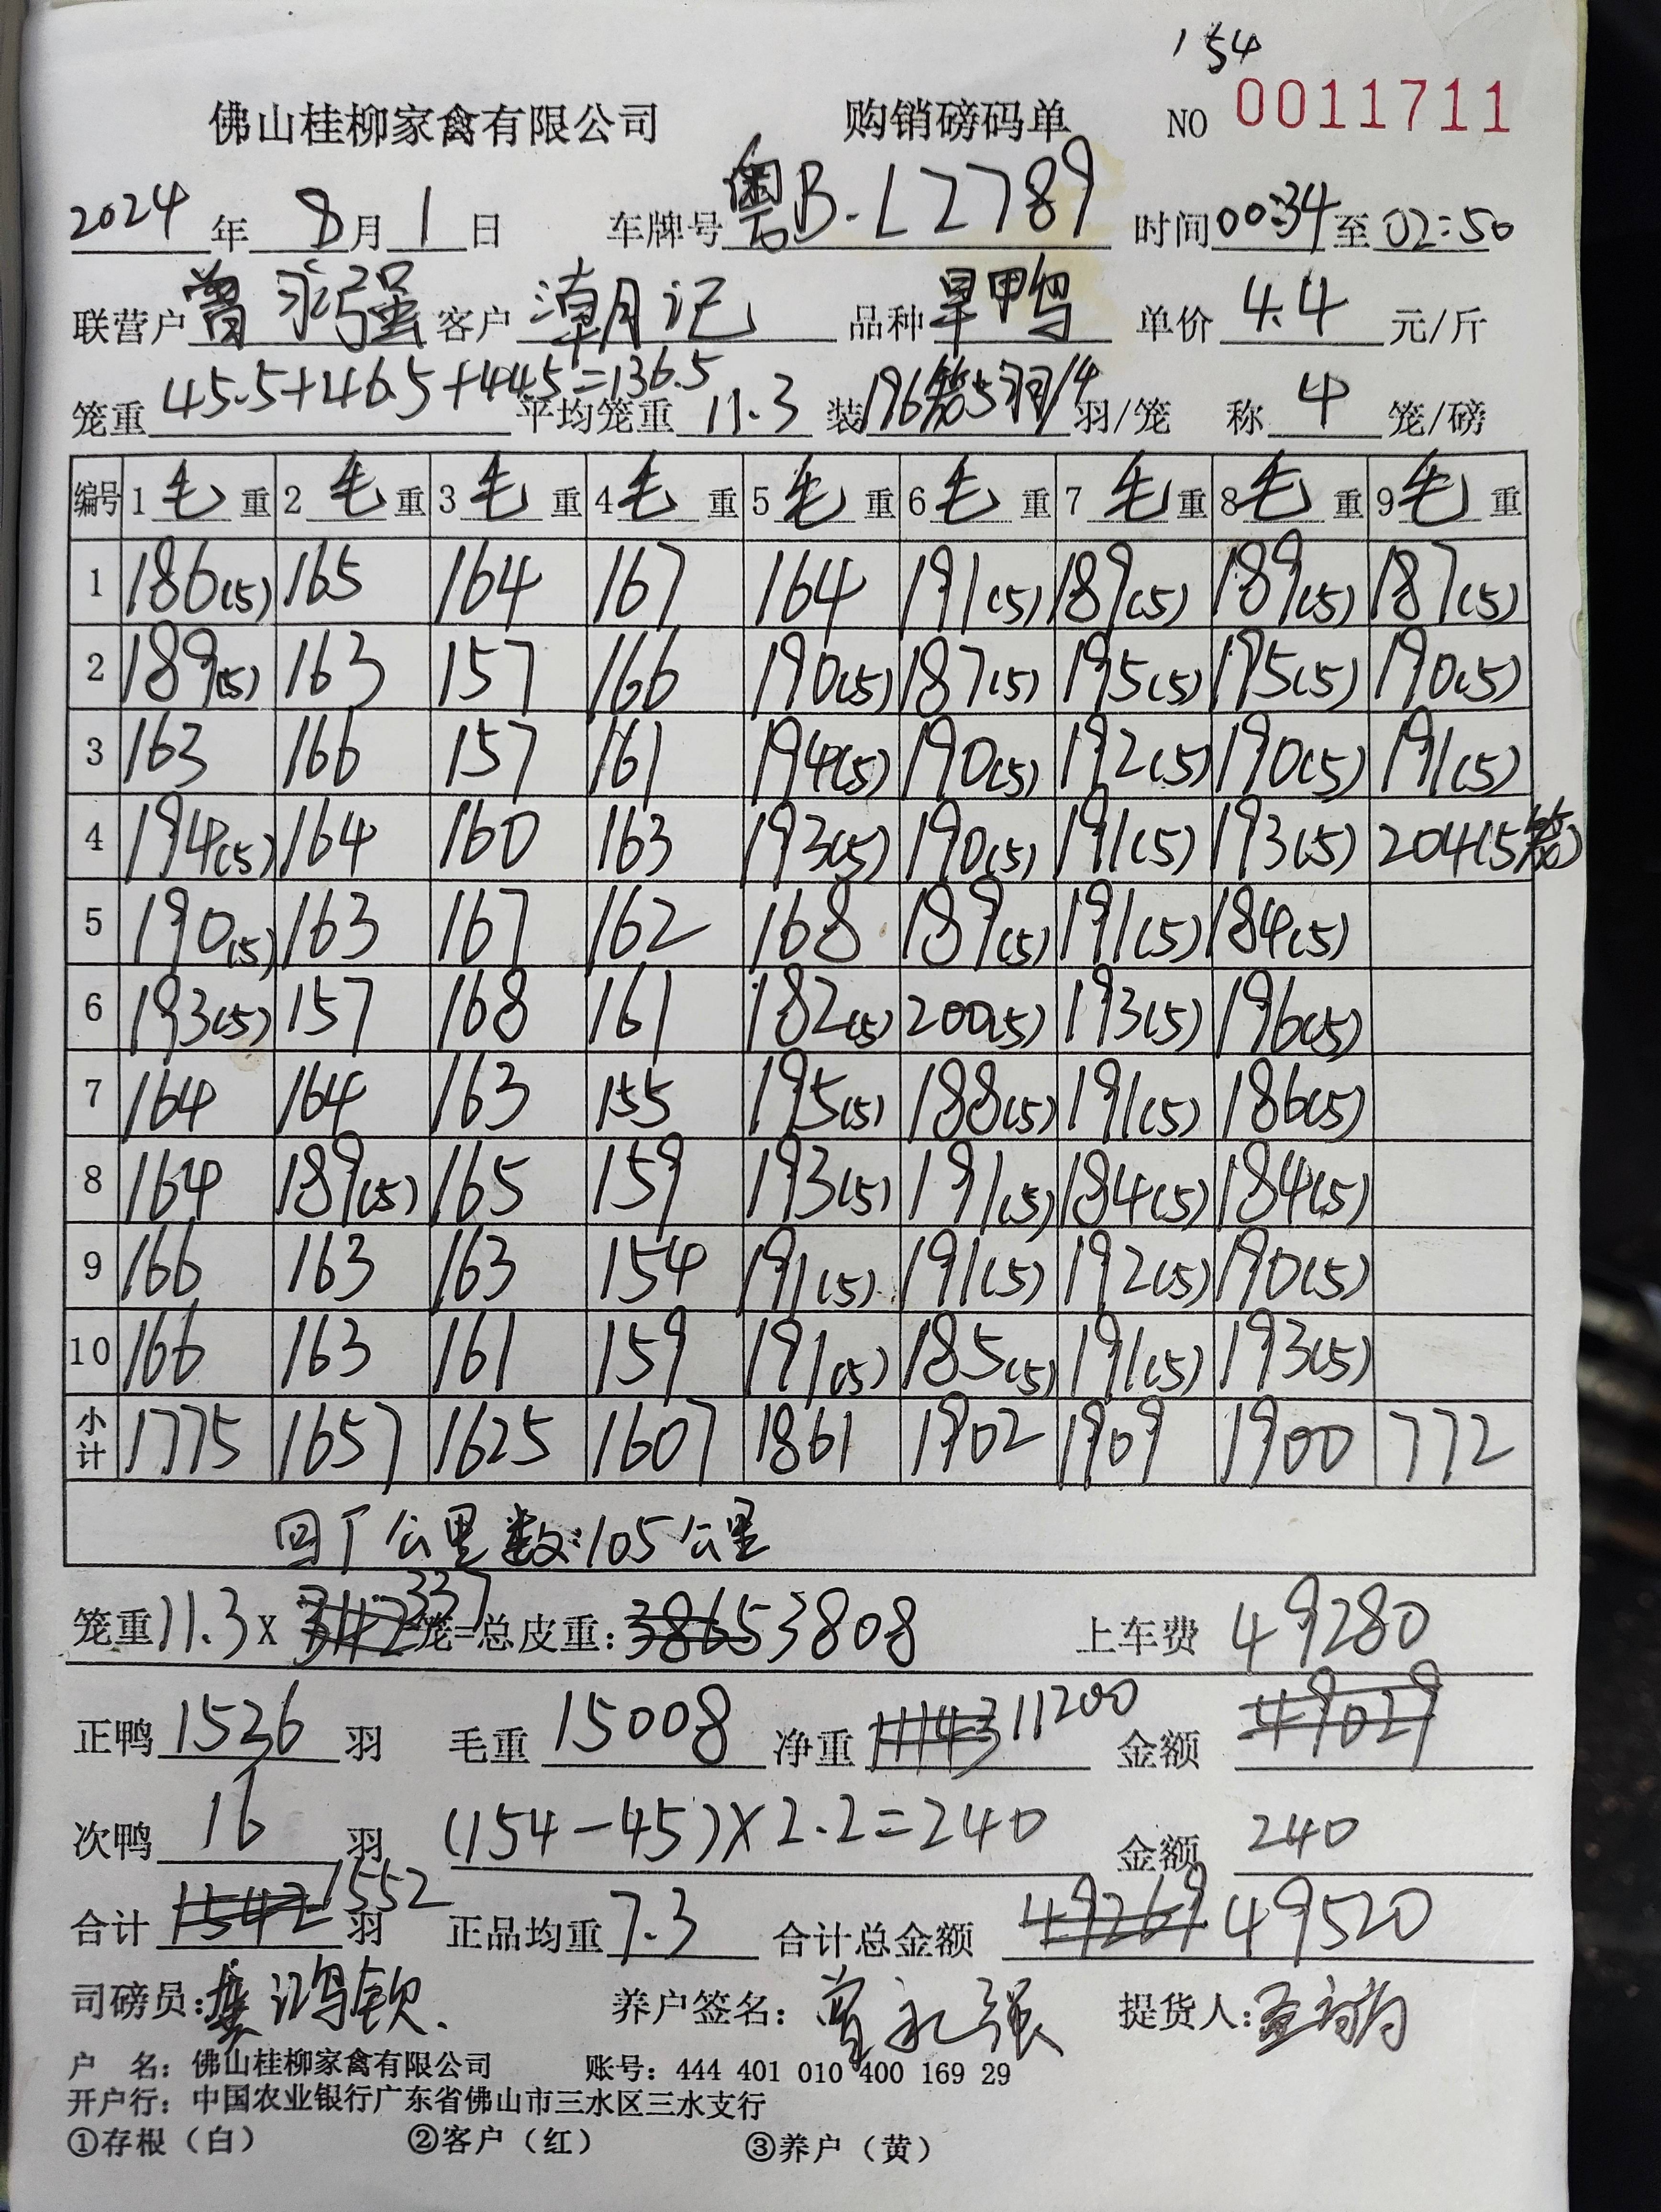 154
佛山桂柳家禽有限公司 购销磅码单 NO 0011711
2024 年 8 月 1 日 车牌号 粤B·L2789 时间 00:34 至 02:50
联营户 曾永强 客户 潮记 品种 旱甲鸭 单价 4.4 元/斤
笼重 45.5+46.5+44.5=136.5 平均笼重 11.3 装 196笼5羽/4 羽/笼 称 4 笼/磅
编号 1 毛 重 2 毛 重 3 毛 重 4 毛 重 5 毛 重 6 毛 重 7 毛 重 8 毛 重 9 毛 重
1 186(5) 165 164 167 164 191(5) 189(5) 189(5) 187(5)
2 189(5) 163 157 166 190(5) 187(5) 195(5) 195(5) 190(5)
3 163 166 157 161 194(5) 190(5) 192(5) 190(5) 191(5)
4 194(5) 164 160 163 193(5) 190(5) 191(5) 193(5) 204(5笼)
5 190(5) 163 167 162 168 189(5) 191(5) 184(5)
6 193(5) 157 168 161 182(5) 200(5) 193(5) 196(5)
7 164 164 163 155 195(5) 188(5) 191(5) 186(5)
8 164 189(5) 165 159 193(5) 191(5) 184(5) 184(5)
9 166 163 163 154 191(5) 191(5) 192(5) 190(5)
10 166 163 161 159 191(5) 185(5) 191(5) 193(5)
小计 1775 1657 1625 1607 1861 1902 1909 1900 772
回厂公里数:105公里
笼重 11.3 x 342 337 笼=总皮重: 3865 3808 上车费 49280
正鸭 1536 羽 毛重 15008 净重 11143 11200 金额 49029
次鸭 16 羽 (154-45)×2.2=240 金额 240
合计 1542 1552 羽 正品均重 7.3 合计总金额 49269 49520
司磅员: 龚鸿钦 养户签名: 曾永强 提货人:
户 名: 佛山桂柳家禽有限公司 账号: 444 401 010 400 169 29
开户行: 中国农业银行广东省佛山市三水区三水支行
①存根（白） ②客户（红） ③养户（黄）